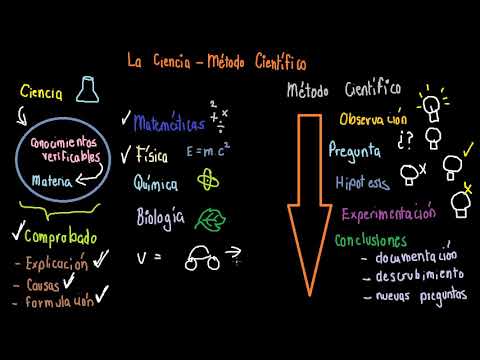 La Ciencia - Método Científico
Ciencia
Conocimientos
verificables
Materia
Comprobado
- Explicación
- Causas
- formulación
Matemáticas
2 + x ÷
Física E = m.c²
Química
Biología
v =
Método Científico
Observación
¿?
Pregunta
Hipotesis
x
x
Experimentación
Conclusiones
- documentación
- descrubimiento
- nuevas preguntas